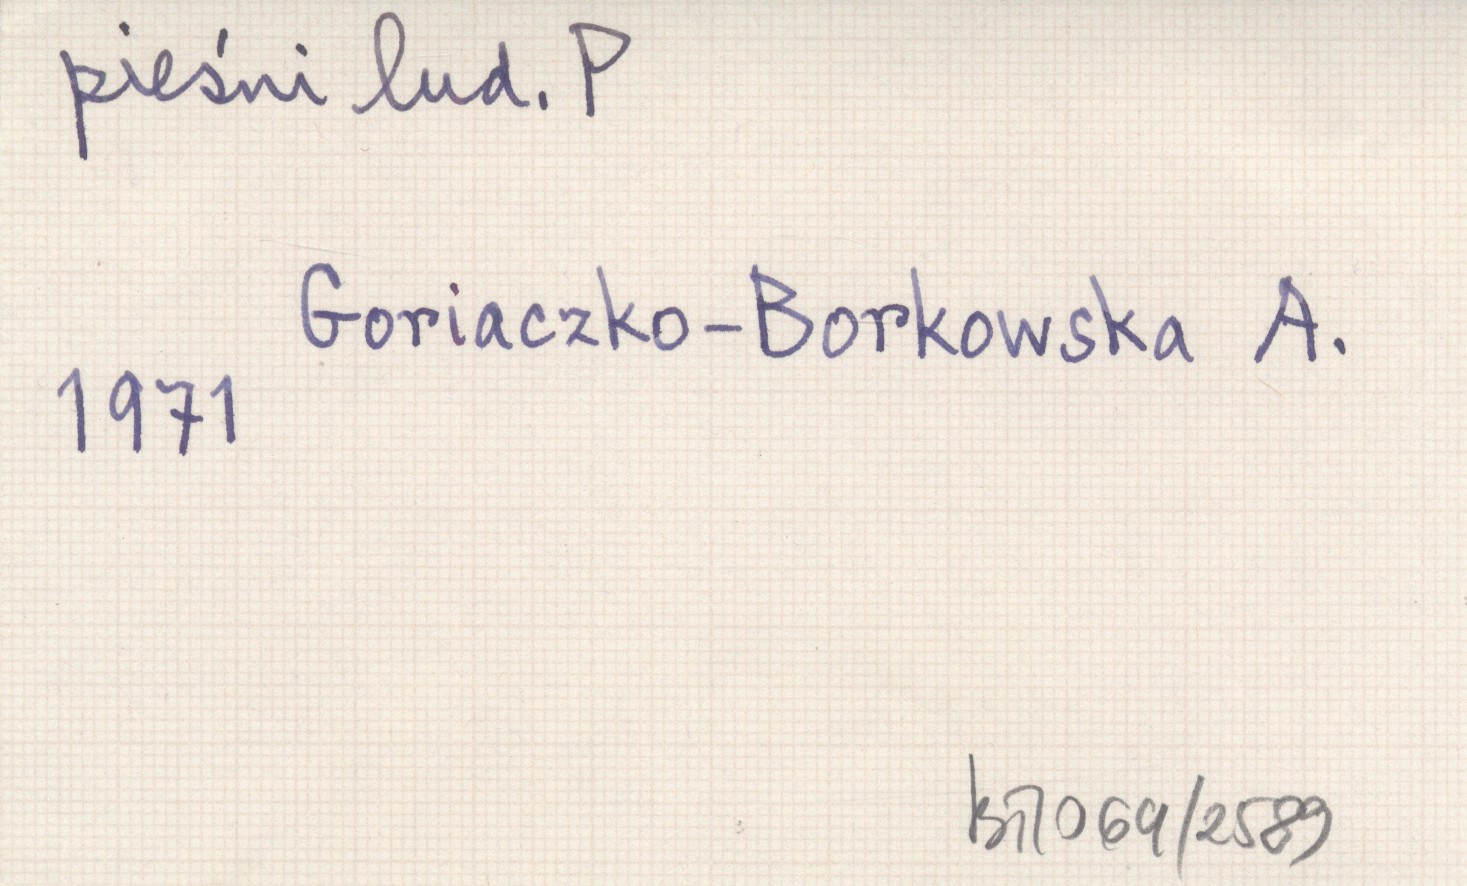 pieśni lud. P
Goriaczko-Borkowska A.
1971
069/2589